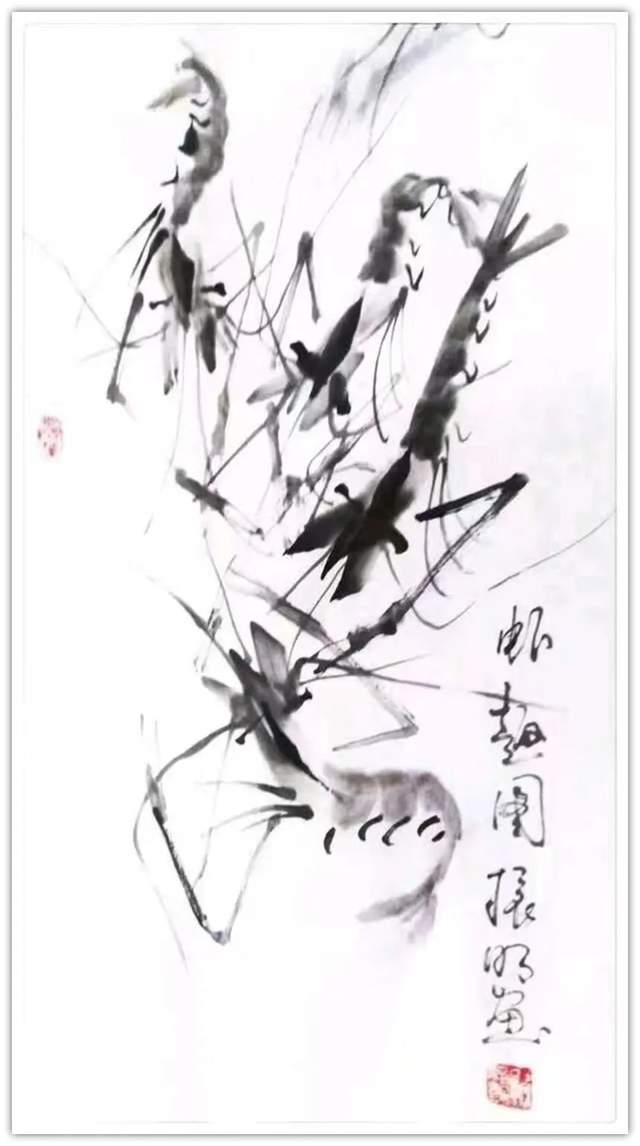 虾趣图振明画